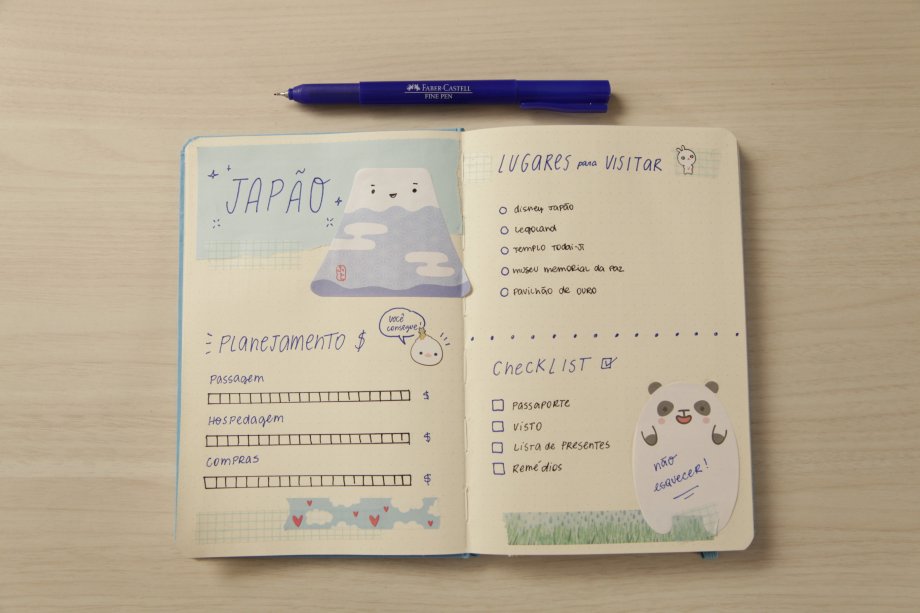 FABER-CASTELL
FINE PEN
JAPÃO
PLANEJAMENTO $
VOCÊ
CONSEGUE!
PASSAGEM
$
HOSPEDAGEM
$
COMPRAS
$
LUGARES para VISITAR
DISNEY JAPÃO
LEGOLAND
TEMPLO TODAI-JI
MUSEU MEMORIAL DA PAZ
PAVILHÃO DE OURO
CHECKLIST
PASSAPORTE
VISTO
LISTA DE PRESENTES
REMÉDIOS
não
esquecer!